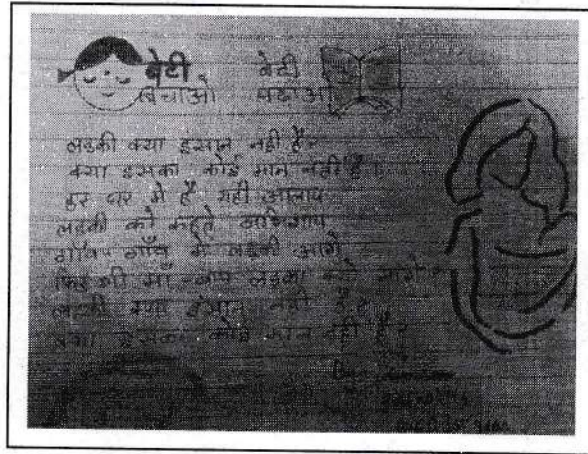 बेटी बेटी
बचाओ पढाओ
लडकी क्या इंसान नही है?
क्या इसका कोई मान नही है।
हर घर मे है यही आलाप
लडकी को कहते अभिशाप
गाँव गाँव मे लडकी आगे
फिर भी माँ-बाप लडका मांगे
लडकी क्या इंसान नही है?
क्या इसका कोई मान नही है?